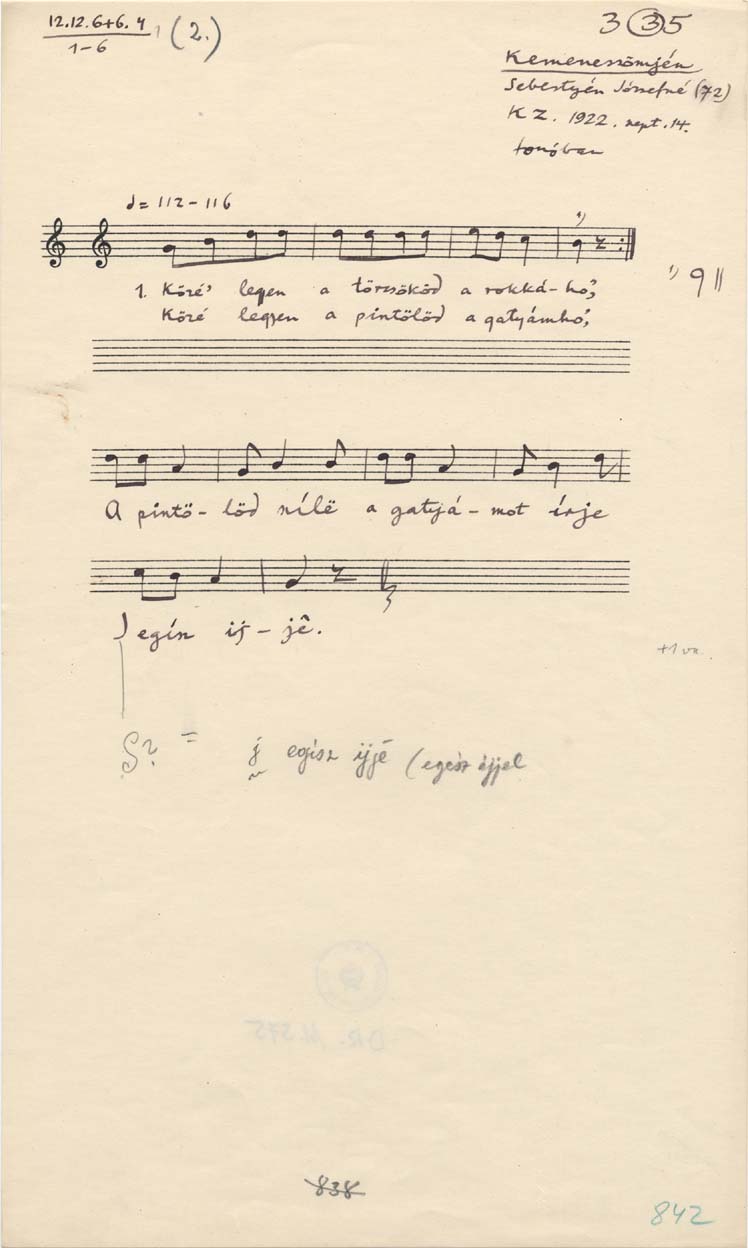 12.12.6+6.4
1-6
(2.)
3 3 5
Kemenessömjén
Sebestyén Józsefné (72)
K Z. 1922. szept. 14.
fonóban
= 112 - 116
1. Közé' legen a törcsököd a rokká-hó;
Közé legyen a pintölöd a gatyámhó;
A pintö-löd nílë a gatyá-mot írje
egín ij-jê.
+1 vn.
= egísz ijjê (egész éjjel
DR. 11.575
838
842